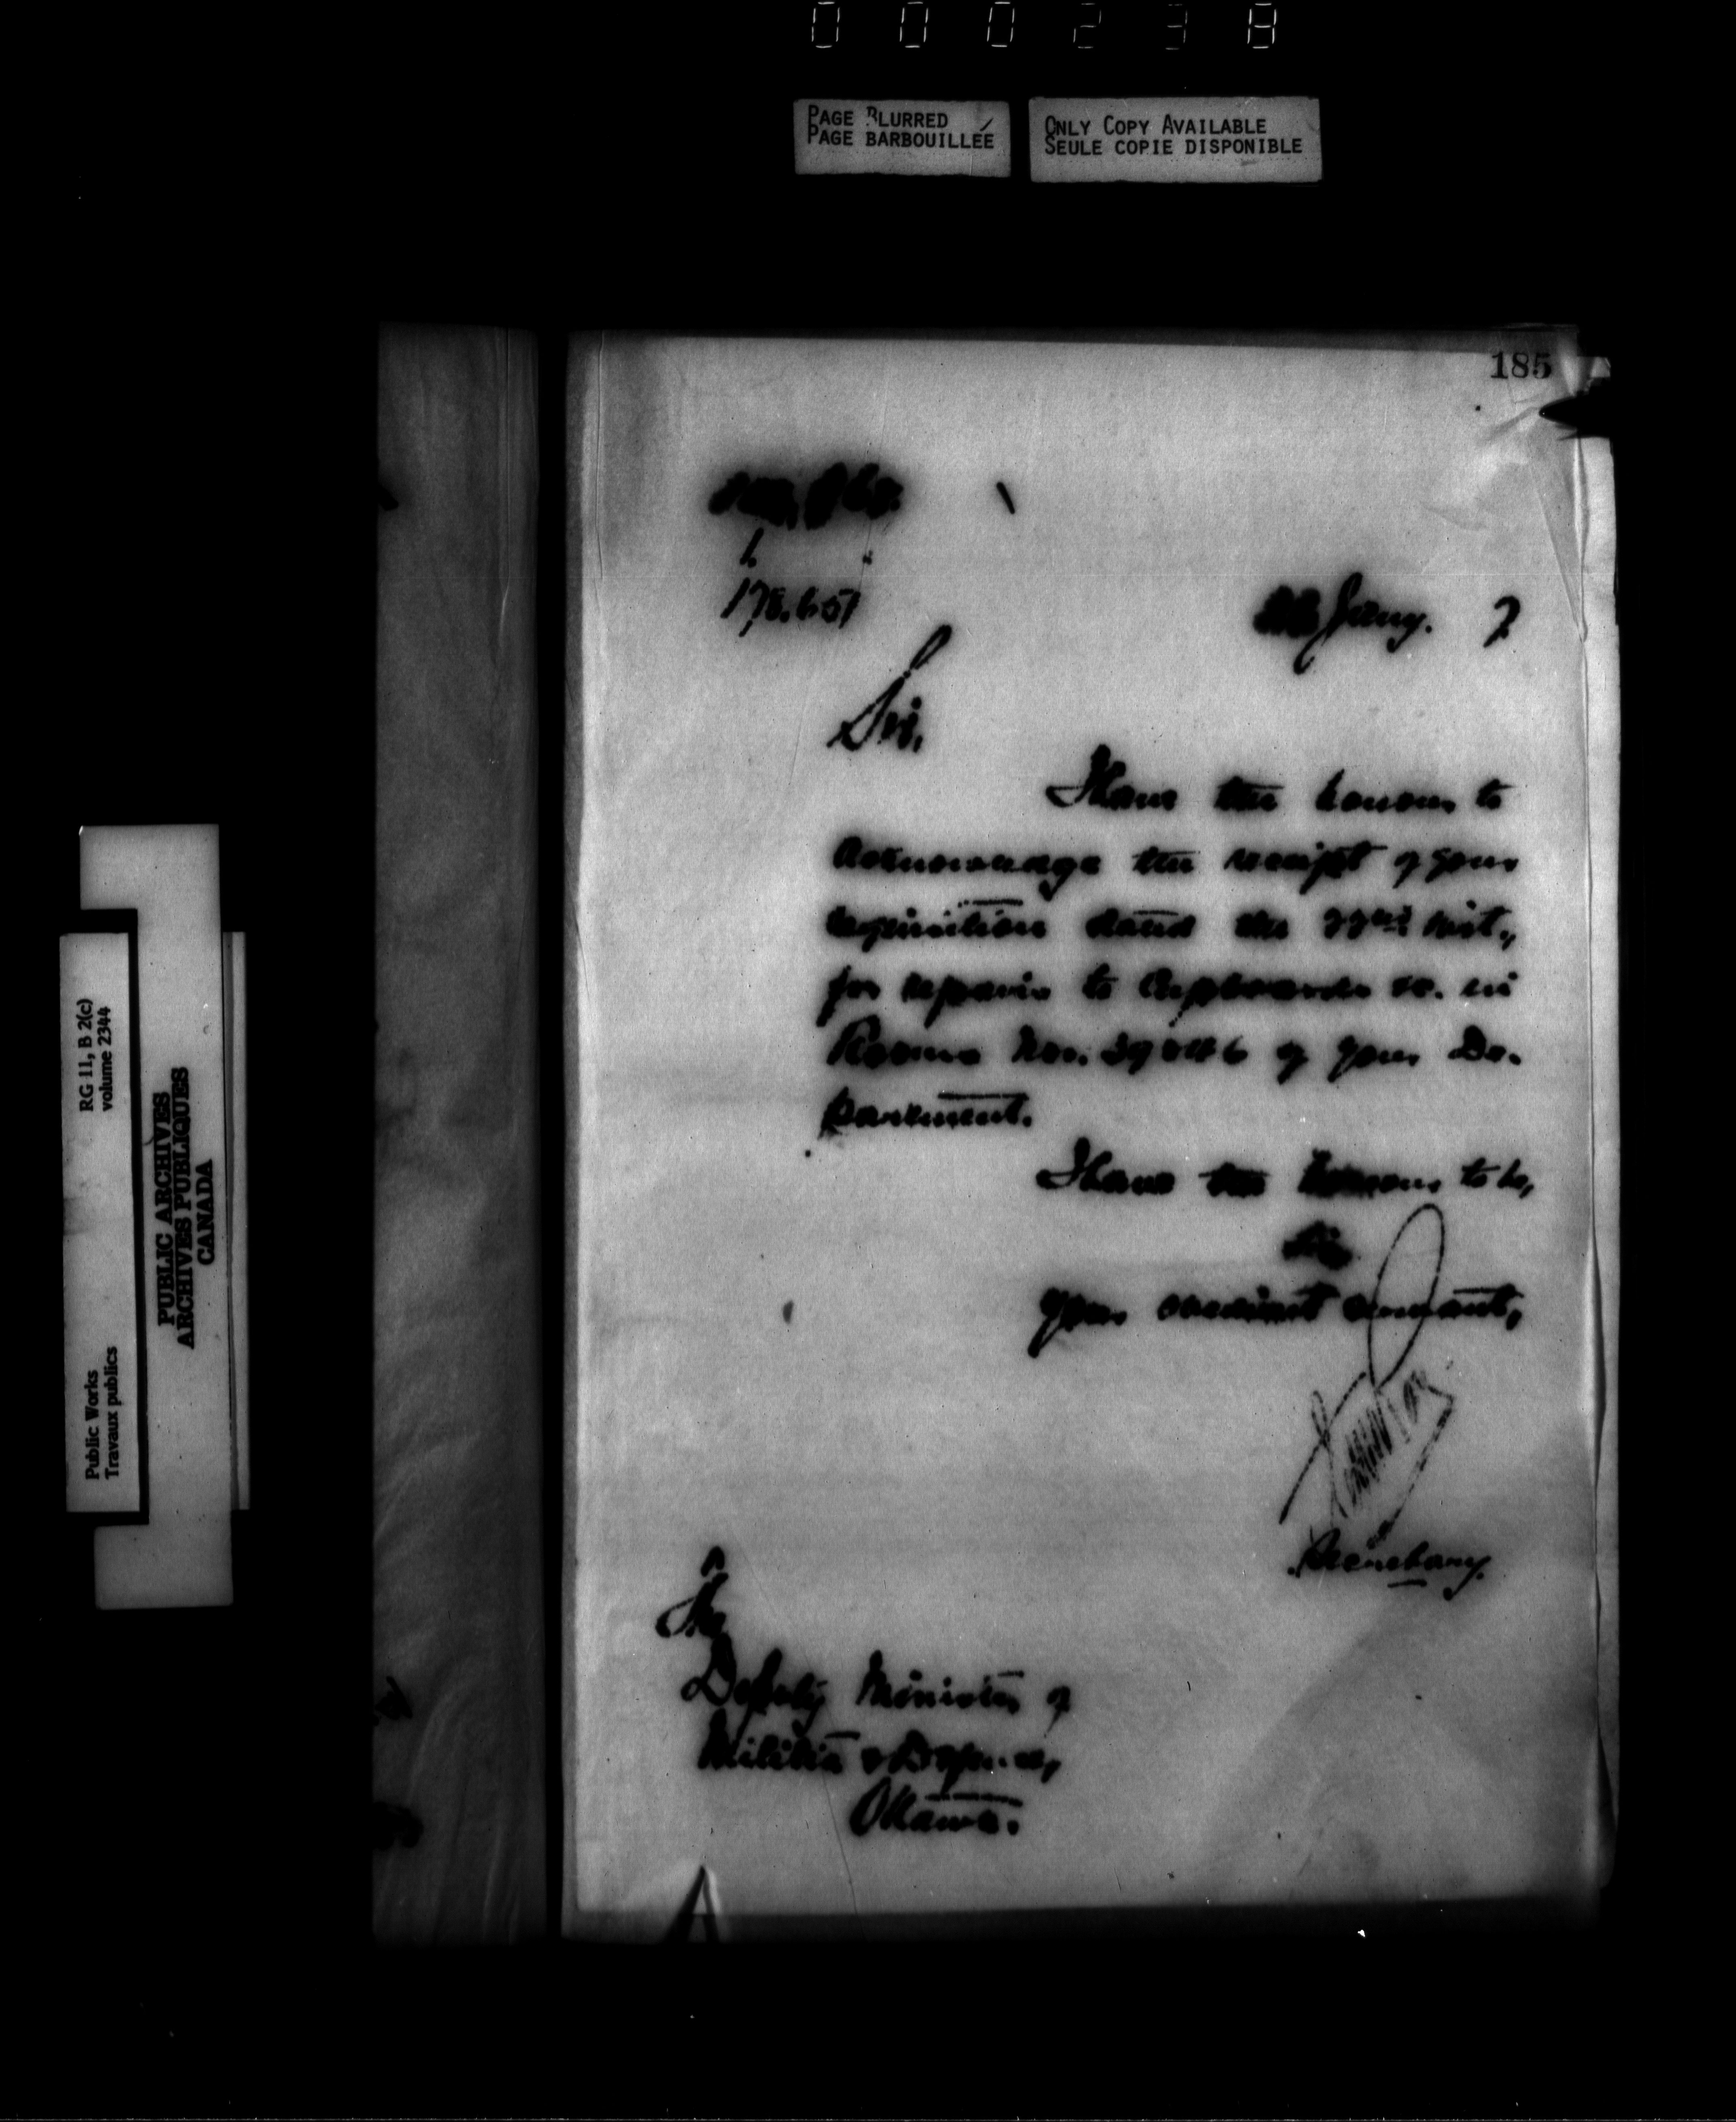 000238
PAGE BLURRED
PAGE BARBOUILLÉE
ONLY COPY AVAILABLE
SEULE COPIE DISPONIBLE
185
1.
178.651
Jany. 7
Sir,
I have the honour to
acknowledge the receipt of your
requisition dated the 22nd inst.,
for repairs to Cupboards &c. in
Rooms Nos. of your De-
partment.
I have the honour to be,
Sir,
Your obedient servant,
Secretary.
The
Deputy Minister of
Militia & Defence,
Ottawa.
RG 11, B 2(c)
volume 2344
Public Works
Travaux publics
PUBLIC ARCHIVES
ARCHIVES PUBLIQUES
CANADA